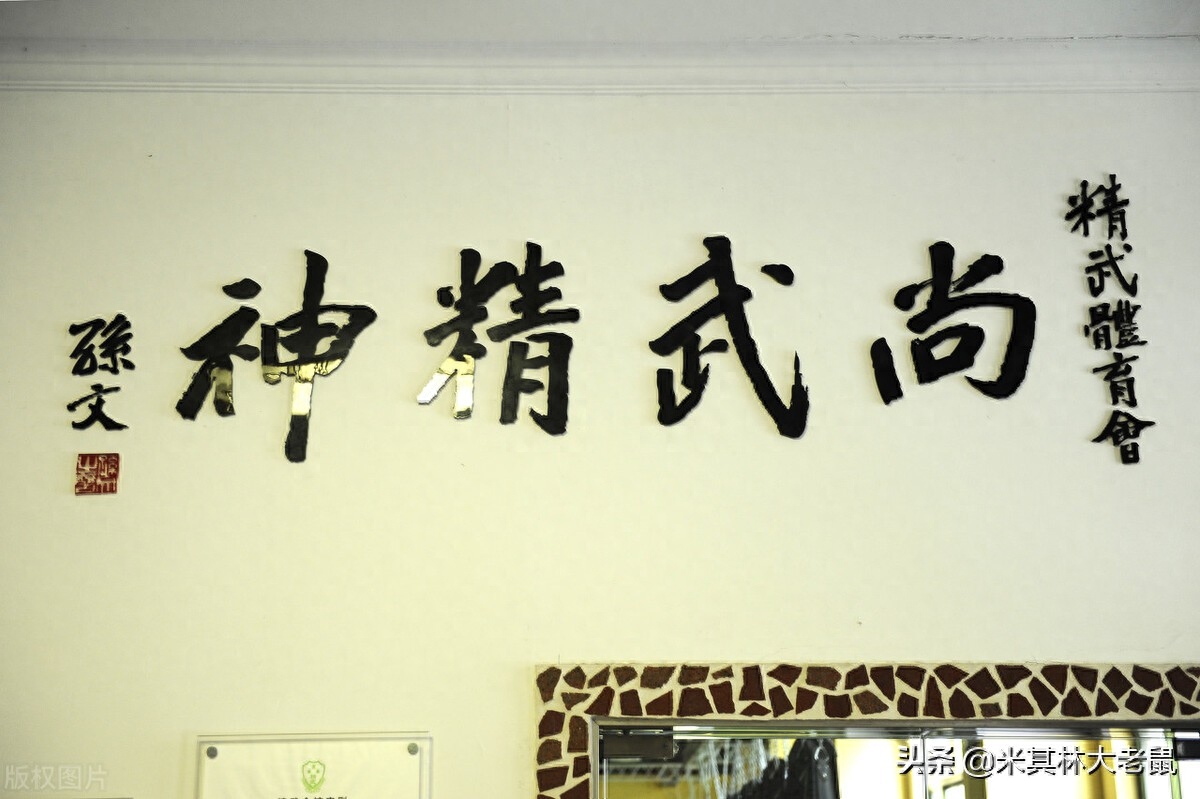 精武體育會
尚武精神
孫文
版权图片
头条 @米其林大老鼠